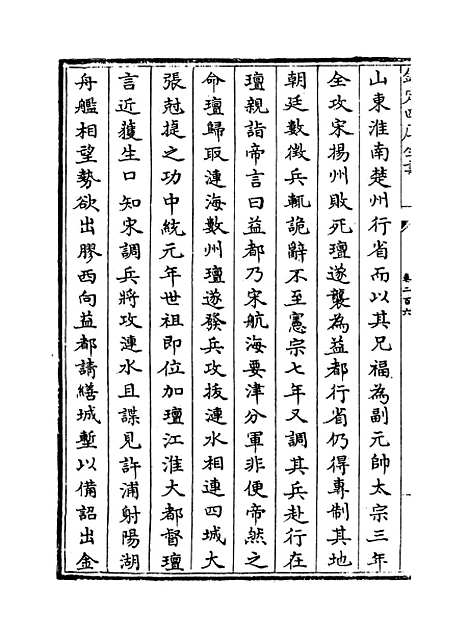 欽定四庫全書
卷二百六
山東淮南楚州行省而以其兄福為副元帥太宗三年
全攻宋揚州敗死璮遂襲為益都行省仍得專制其地
朝廷數徵兵輒詭辭不至憲宗七年又調其兵赴行在
璮親詣帝言曰益都乃宋航海要津分軍非便帝然之
命璮歸取漣海數州璮遂發兵攻拔漣水相連四城大
張尅㨗之功中統元年世祖即位加璮江淮大都督璮
言近獲生口知宋調兵將攻漣水且諜見許浦射陽湖
舟艦相望勢欲出膠西向益都請繕城塹以備詔出金